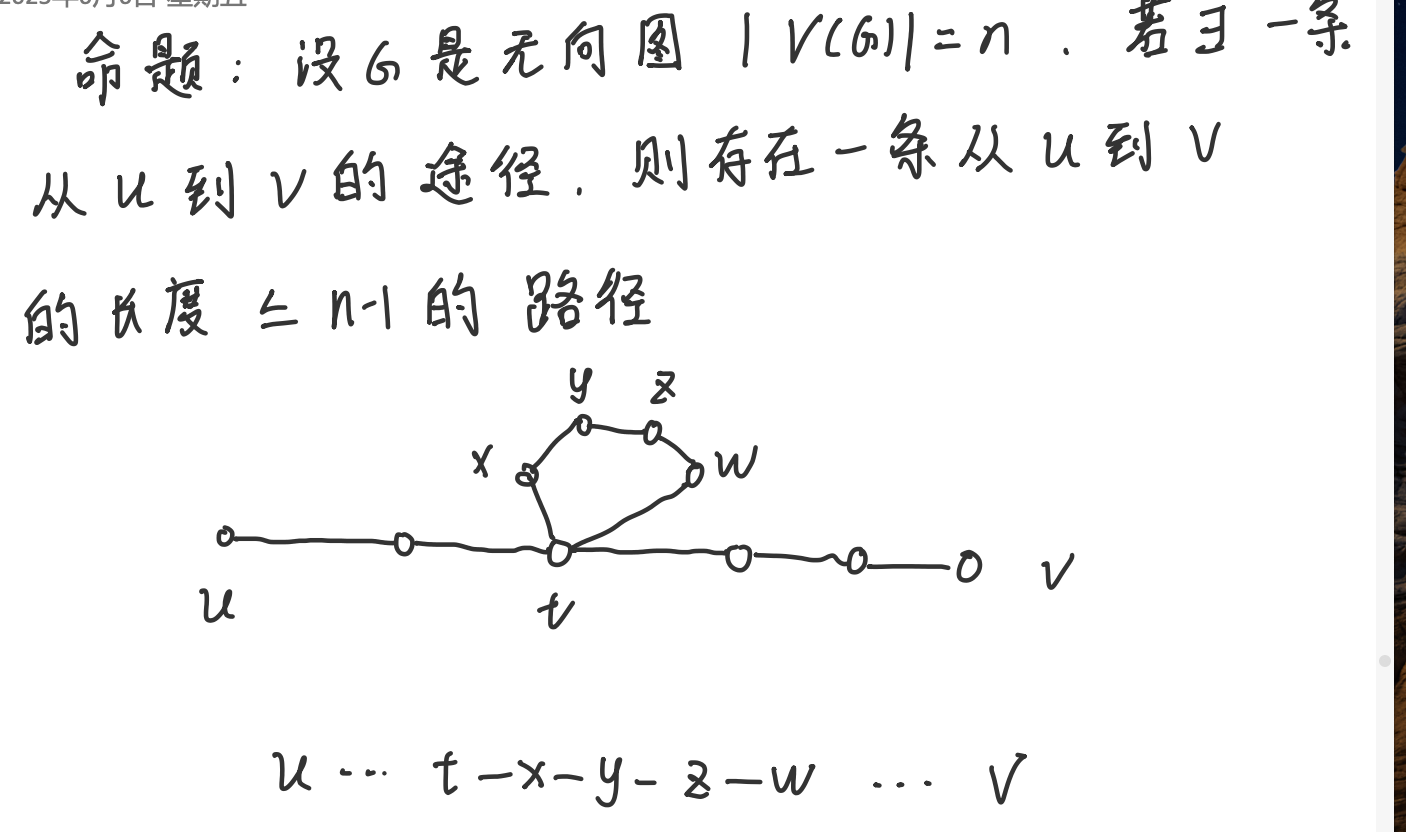 命题：设G是无向图 |V(G)|=n . 若∃一条
从 u 到 v 的途径. 则存在一条从 u 到 v
的长度 ≤ n-1 的 路径
y z
x w
u t v
u … t-x-y-z-w … v